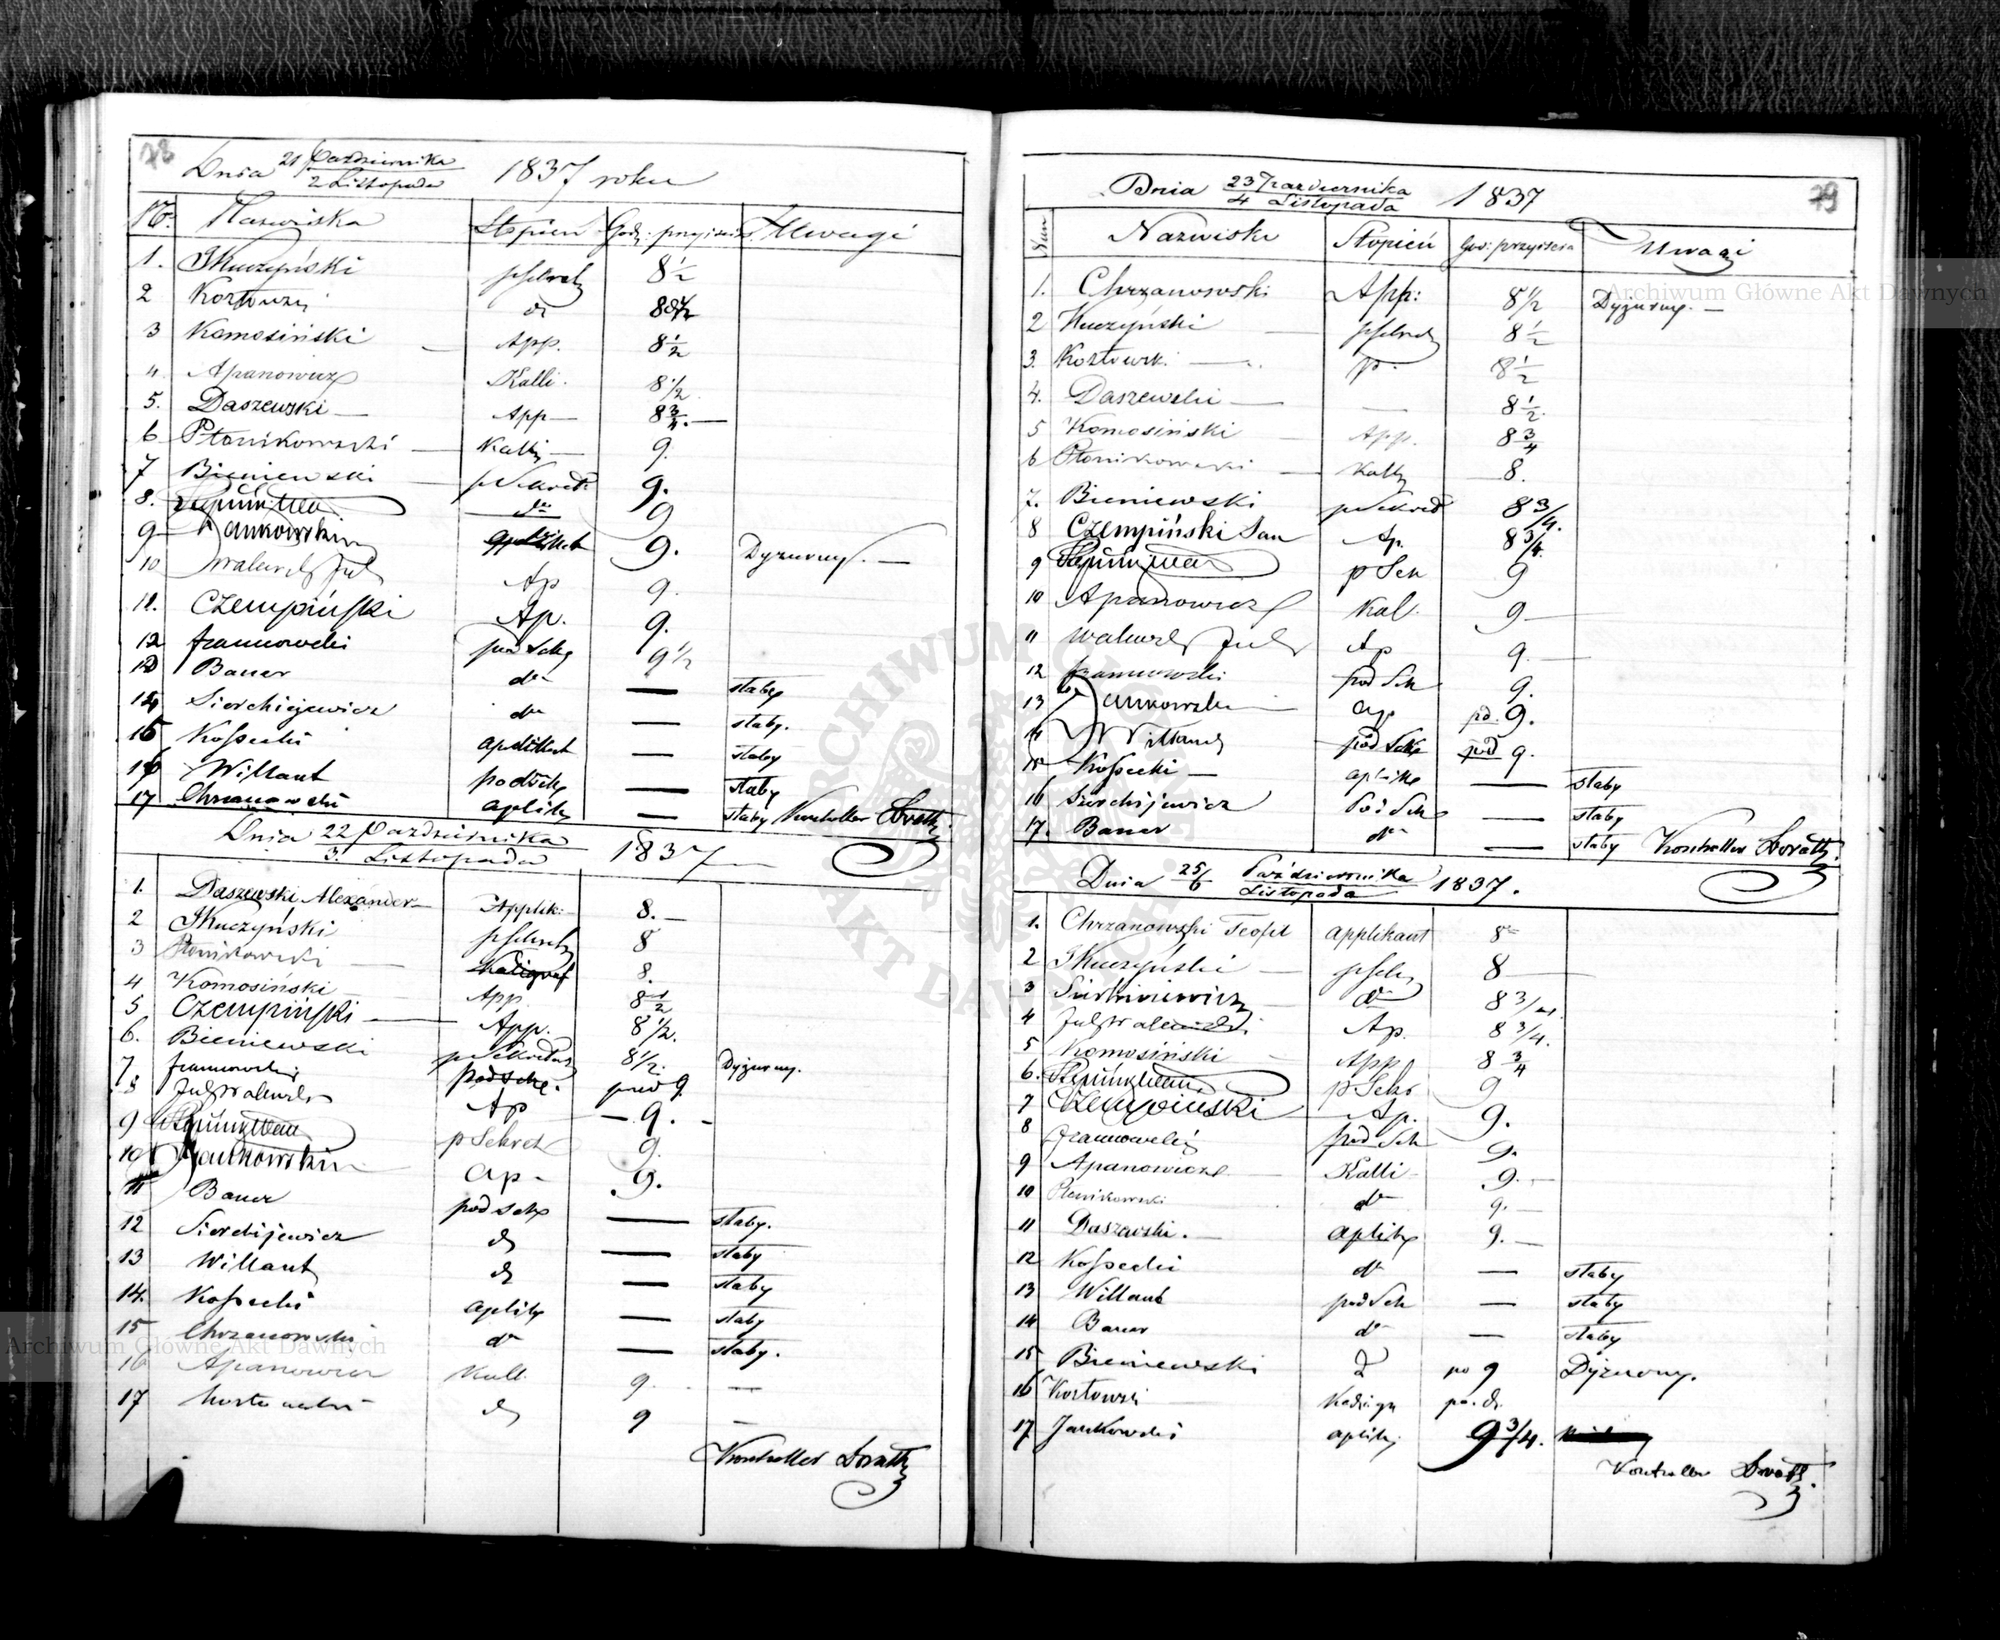 78
Dnia 21 Października / 2 Listopada 1837 roku
No. Nazwiska Stopień Godz: przyjścia Uwagi
1. JKuczyński pSekret 8 1/2
2 Kozłowski d 8 1/2
3 Komosiński — App. 8 1/2
4. Apanowicz Kalli. 8 1/2
5. Daszewski — App — 8 3/4. —
6 Płonikowski — Kalli — 9.
7 Bieniewski — pSekret 9.
8. do 9
9 Jankowski aplikat 9. Dyżurny. —
10 Walewski Jul Ap 9.
11. Czempiński Ap. 9.
12 pod Sek 9 1/2
13 Bauer do — słaby
14 Sierchijewicz do — słaby.
15 Kossecki aplikat — słaby
16 Willant podSek — słaby
17 Chrzanowski aplik — słaby Kontroller
Dnia 22 Października / 3. Listopada 1837 —
1. Daszewski Alexander — Applik: 8. —
2 JKuczyński pSekret 8
3 Płonikowski — Kaligraf 8.
4 Komosiński — App. 8 1/2
5 Czempiński — App. 8 1/2.
6. Bieniewski pSekretarz 8 1/2. Dyżurny.
7. podSek. 9
8 Jul Walewski Ap — 9. -
9 pSekret 9.
10 Jankowski Ap - 9.
11 Bauer podSek — słaby.
12 Sierchijewicz d — słaby
13 Willant d — słaby
14. Kossecki aplik — słaby
15 Chrzanowski do — słaby.
16 Apanowicz Kall. 9. —
17 Kozłowski d 9 —
Kontroller
79
Dnia 23 Października / 4 Listopada 1837
Num Nazwiska Stopień God: przyjścia Uwagi
1. Chrzanowski App: 8 1/2 Dyżurny. —
2 Kuczyński — pSekret 8 1/2
3. Kozłowski — p - 8 1/2
4. Daszewski — — 8 1/2.
5 Komosiński — App. 8 3/4
6 Płonikowski — Kall 8.
7. Bieniewski pSekret 8 3/4.
8 Czempiński Jan Ap. 8 3/4.
9 pSek 9
10 Apanowicz Kal. 9 —
11 Walewski Jul Ap 9. —
12 pod Sek 9.
13 Jankowski — Ap pd. 9.
14 Willant pod Sek pod 9.
15 Kossecki — aplik — słaby
16 Sierchijewicz Pod Sek — słaby
17. Bauer do — słaby Kontroller
Dnia 25/6 Października / Listopada 1837.
1. Chrzanowski Teofil applikant 8
2 JKuczyński — pSek 8 —
3 Sierhiiewicz — do 8 3/4.
4 Jul Walewski Ap. 8 3/4.
5 Komosiński — App 8 3/4
6. pSekr 9
7 Czempiński — Ap. 9.
8 pod Sek 9.
9 Apanowicz — Kalli — 9. —
10 Płonikowski do 9. —
11 Daszewski. — aplik 9. —
12 Kossecki do — słaby
13 Willant pod Sek — słaby
14 Bauer do — słaby
15 Bieniewski d po 9 Dyżurny.
16 Kozłowski
17 Jankowski aplik. 9 3/4.
Kontroller
Archiwum Główne Akt Dawnych
Archiwum Główne Akt Dawnych
ARCHIWUM GŁÓWNE AKT DAWNYCH